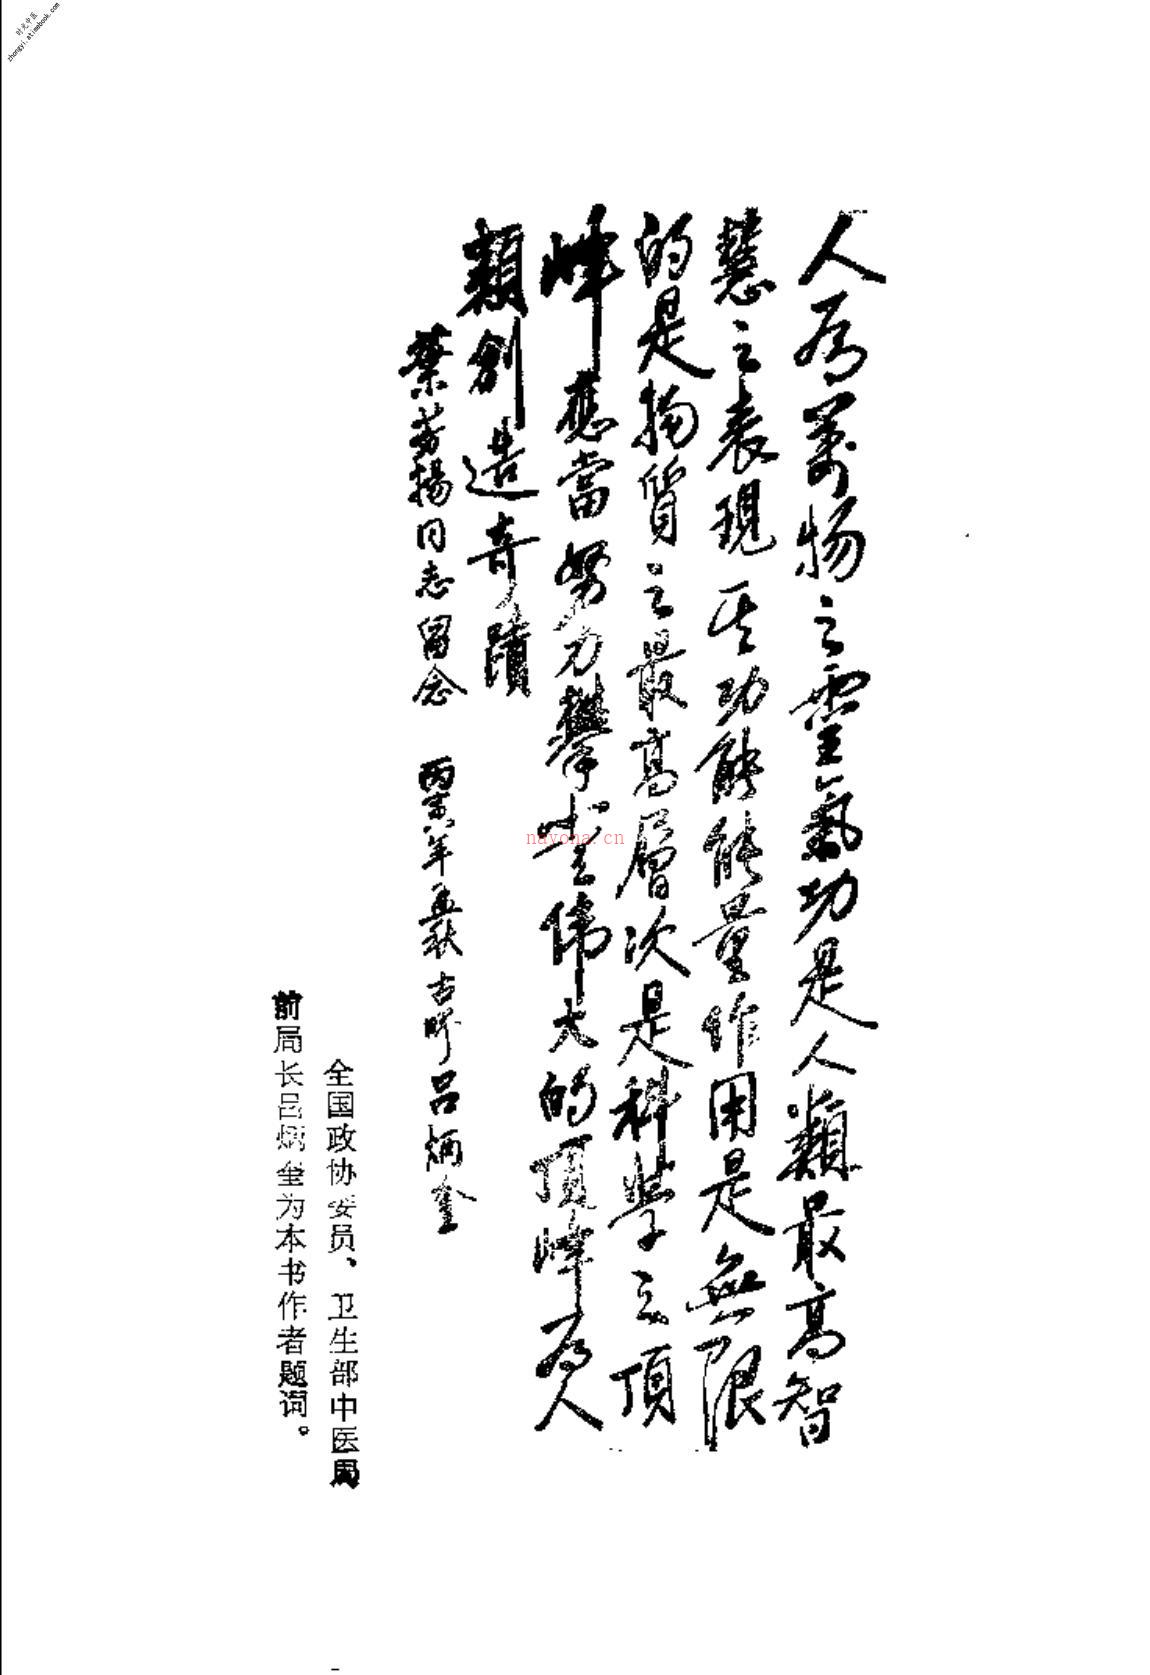 时光中医
zhongyi.atimebook.com
人為萬物之靈氣功是人類最高智
慧之表現其功能能量作用是無限
的是物質之最高層次是科学之頂
峰應當努力攀登偉大的頂峰為人
類創造奇蹟
葉揚同志留念 年孟秋 吕炳奎
nayona.cn
全国政协委员、卫生部中医局
前局长吕炳奎为本书作者题词。